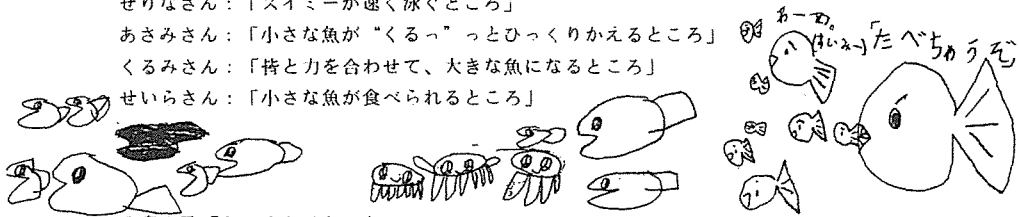 せりなさん：「スイミーが速く泳ぐところ」
あさみさん：「小さな魚が“くるっ”っとひっくりかえるところ」
くるみさん：「皆と力を合わせて、大きな魚になるところ」
せいらさん：「小さな魚が食べられるところ」
わーっ。
(すいみー)
「たべちゃうぞ」